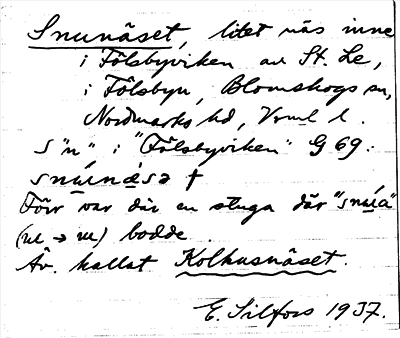 Snunäset, litet näs inne
i Fölsbyviken av St. Le,
i Fölsbyn, Blomskogs sn,
Nordmarks hd, Vrml l.
S"n" i "Fölsbyviken" G 69:
snúnǟsə †
Förr var där en stuga där "snúa"
bodde.
Äv. kallat Kolhusnäset.
E. Silfors 1937.